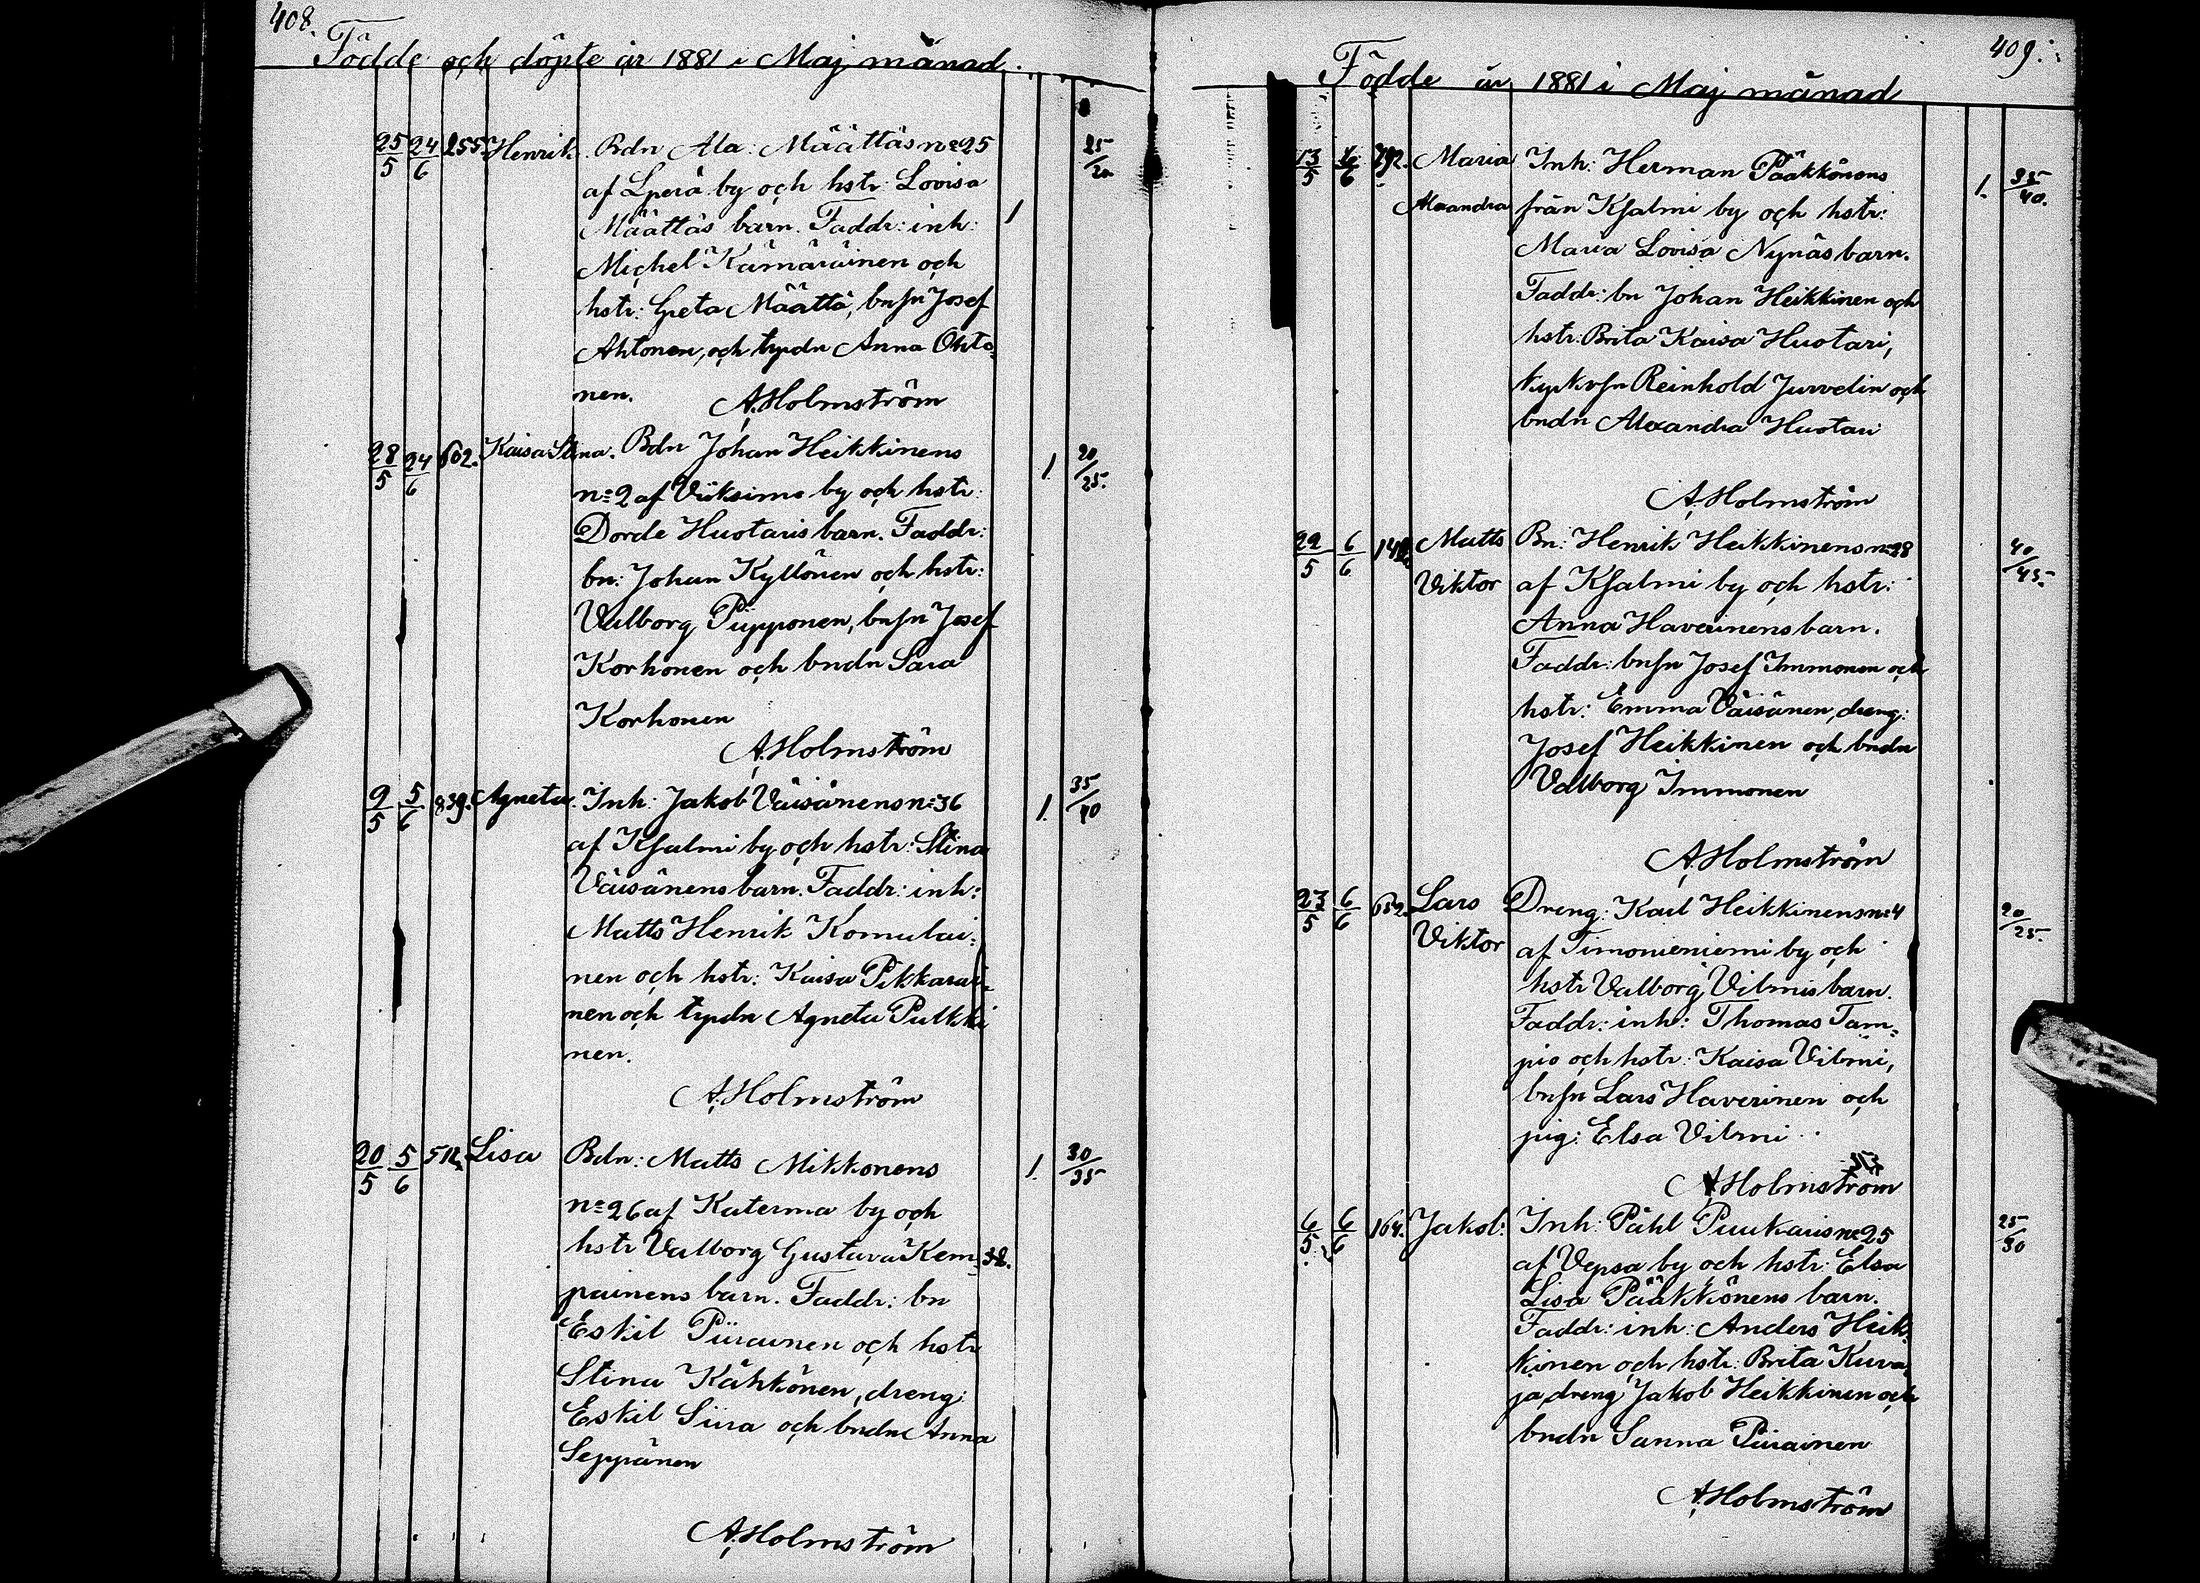 408.
Födde och döpte år 1881 i Maj månad.
25/5 24/6 255. Henrik. Bdn Ala: Määttäs n:25 25/20
af Lperä by och hstr: Lovisa
Määttäs barn. Faddr: inh: 1
Michel Kämäräinen och
hstr: Greta Määttä, bnsn Josef
Ahtonen, och tpdn Anna Ohto-
nen.
A. Holmström
28/5 24/6 602. Kaisa Stina. Bdn Johan Heikkinens 1 20/25.
n:2 af Viiksimo by och hstr:
Dorde Huotaris barn. Faddr:
bn: Johan Kyllönen och hstr:
Valborg Piipponen, bnsn Josef
Korhonen och bndn Sara
Korhonen
A. Holmström
9/5 5/6 839. Agneta. Inh: Jakob Väisänens n:36 1. 35/40
af Kjalmi by och hstr: Stina
Väisänens barn. Faddr: inh:
Matts Henrik Komulai-
nen och hstr: Kaisa Pikkarai-
nen och tpdn Agneta Pulkki
nen.
A. Holmström
20/5 5/6 512. Lisa Bdn: Matts Mikkonens 1. 30/35
n:26 af Katerma by och
hstr Valborg Gustava Kem-
painens barn. Faddr: bn
Eskil Piirainen och hstr
Stina Kähkönen, dreng:
Eskil Siira och bndn Anna
Seppänen
A. Holmström
409.
Födde år 1881 i Maj månad
13/5 6/6 792. Maria Inh: Herman Pääkkönens 1. 35/40.
Alexandra från Kjalmi by och hstr:
Maria Lovisa Nynäs barn.
Faddr: bn Johan Heikkinen och
hstr: Brita Kaisa Huotari,
Reinhold Jurvelin och
bndn Alexandra Huotari
A. Holmström
22/5 6/6 Matts Bn: Henrik Heikkinens n:28 40/45.
Viktor af Kjalmi by och hstr:
Anna Haverinens barn.
Faddr: bnsn Josef Immonen och
hstr: Emma Väisänen, dreng:
Josef Heikkinen och bndn
Valborg Immonen
A. Holmström
23/5 6/6 652. Lars Dreng: Karl Heikkinens n:4 20/25.
Viktor af Timonieniemi by och
hstr Valborg Vilmis barn.
Faddr: inh: Thomas Tam-
pio och hstr: Kaisa Vilmi,
bnsn Lars Haverinen och
pig: Elsa Vilmi
A. Holmström
6/5 6/6 164. Jakob: Inh: Påhl Puukaris n:25 25/30
af Vepsa by och hstr: Elsa
Lisa Pääkkönens barn.
Faddr: inh: Anders Heik-
kinen och hstr: Brita Kuva-
ja, dreng Jakob Heikkinen och
bndn Sanna Piirainen
A. Holmström